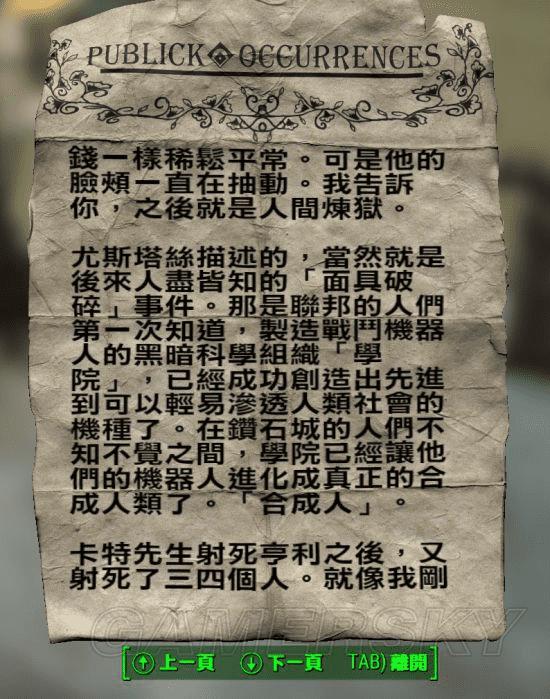 PUBLICK OCCURRENCES
錢一樣稀鬆平常。可是他的
臉頰一直在抽動。我告訴
你，之後就是人間煉獄。
尤斯塔絲描述的，當然就是
後來人盡皆知的「面具破
碎」事件。那是聯邦的人們
第一次知道，製造戰鬥機器
人的黑暗科學組織「學
院」，已經成功創造出先進
到可以輕易滲透人類社會的
機種了。在鑽石城的人們不
知不覺之間，學院已經讓他
們的機器人進化成真正的合
成人類了。「合成人」。
卡特先生射死亨利之後，又
射死了三四個人。就像我剛
GAMERSKY
上一頁 下一頁 TAB) 離開